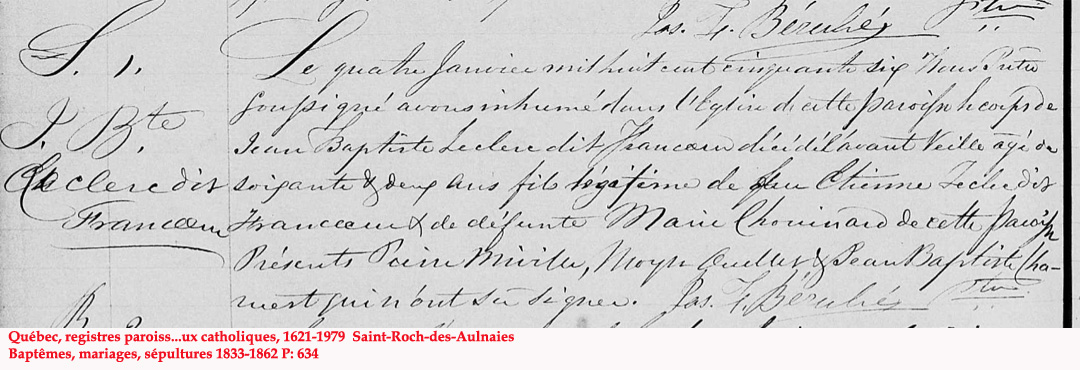 Jos. F. Bérubé Ptre
S. 1.
J. Bte
Leclerc dit
Francœur
Le quatre Janvier mil huit cent cinquante six Nous Prêtre
soussigné avons inhumé dans l'Eglise de cette paroisse le corps de
Jean Baptiste Leclerc dit Francœur décédé l'avant veille agé de
soixante & deux ans fils légitime de feu Etienne Leclerc dit
Francœur & de défunte Marie Chouinard de cette paroisse
Présents Pierre Ouellet & Jean Baptiste Cha-
rest qui n'ont su signer. Jos. F. Bérubé Ptre
Québec, registres paroiss...ux catholiques, 1621-1979 Saint-Roch-des-Aulnaies
Baptêmes, mariages, sépultures 1833-1862 P: 634